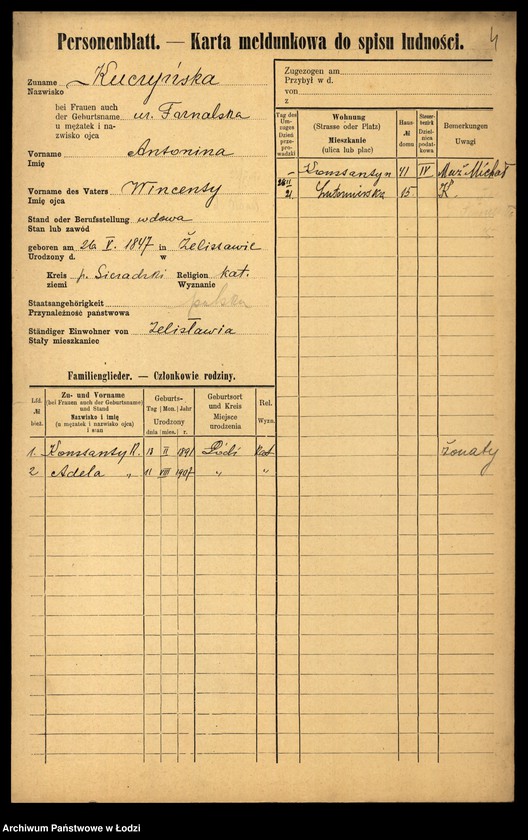 4
Personenblatt. — Karta meldunkowa do spisu ludności.
Zuname Kuczyńska
Nazwisko
bei Frauen auch
der Geburtsname ur. Farnalska
u mężatek i na-
zwisko ojca
Vorname Antonina
Imię
Vorname des Vaters Wincenty
Imię ojca
Stand oder Berufsstellung wdowa
Stan lub zawód
geboren am 26 V. 1847 in Żelisławic
Urodzony d. w
Kreis p. Sieradzki Religion kat.
ziemi Wyznanie
Staatsangehörigkeit polska
Przynależność państwowa
Ständiger Einwohner von Zelisławia
Stały mieszkaniec
Familienglieder. — Członkowie rodziny.
Lfd. № bież.
Zu- und Vorname
(bei Frauen auch der Geburtsname)
und Stand
Nazwisko i imię
(u mężatek i nazwisko ojca)
i stan
Geburts-
Tag Mon. Jahr
Urodzony
dnia mies. r.
Geburtsort
und Kreis
Miejsce
urodzenia
Rel.
Wyzn.
1. Konstanty K. 13 II 1891 Łódź Kat żonaty
2 Adela „ 11 VIII 1907 „ „
Zugezogen am
Przybył w d.
von
z
Tag des
Um-
zuges
Dzień
prze-
prowadzki
Wohnung
(Strasse oder Platz)
Mieszkanie
(ulica lub plac)
Haus-
№
domu
Steuer-
bezirk
Dziel-
nica
podat-
kowa
Bemerkungen
Uwagi
— Konstantyn 41 IV Mąż Michał
28 II 21. Lutomierska 15. K.
Archiwum Państwowe w Łodzi